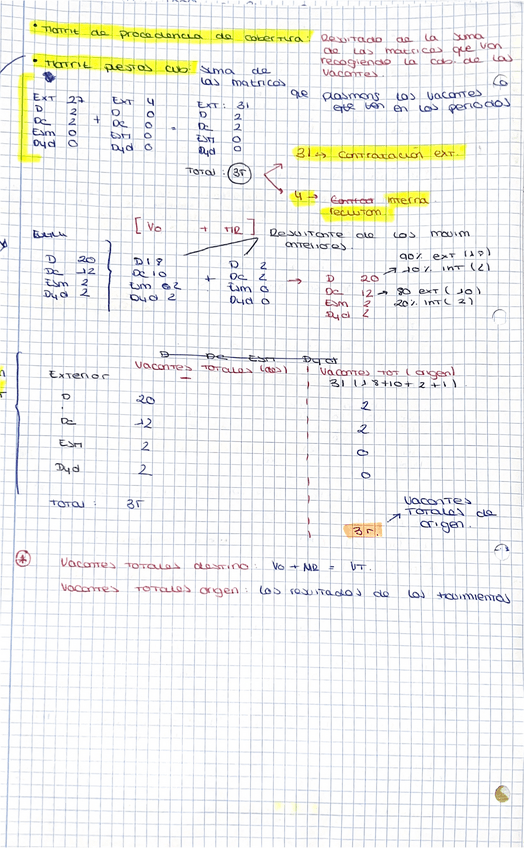 • Matriz de procedencia de cobertura: Resultado de la suma
de las matrices que van
recogiendo la cob. de las
vacantes.
• Matriz pestos cub suma de
las matrices
que plasmons las vacantes
que van en los periodos
Ext 27 Ext 4 Ext: 31
D 2 + D 0 = D 2
Dc 2 Dc 0 Dc 2
Esm 0 Esm 0 Esm 0
Dyd 0 Dyd 0 Dyd 0
Total: 35
31 → Contratación ext.
4 → interna
reclutam.
[ Vo + MR ] Resultante de los movim
anteriores.
D 20 D 18 D 2 D 20
Dc 12 Dc 10 + Dc 2 → Dc 12
Esm 2 Esm 02 Esm 0 Esm 2
Dyd 2 Dyd 2 Dyd 0 Dyd 2
90% ext (18)
→ 10% int (2)
→ 80 ext (10)
20% int (2)
D Dc Esm Dyd
Exterior Vacantes Totales (des) Vacantes Tot (origen)
31 (18+10+2+1)
D 20 2
Dc 12 2
Esm 2 0
Dyd 2 0
Total: 35
35.
Vacantes
Totales de
origen.
Vacantes Totales destino: Vo + MR = VT.
Vacantes Totales origen: los resultados de los movimientos